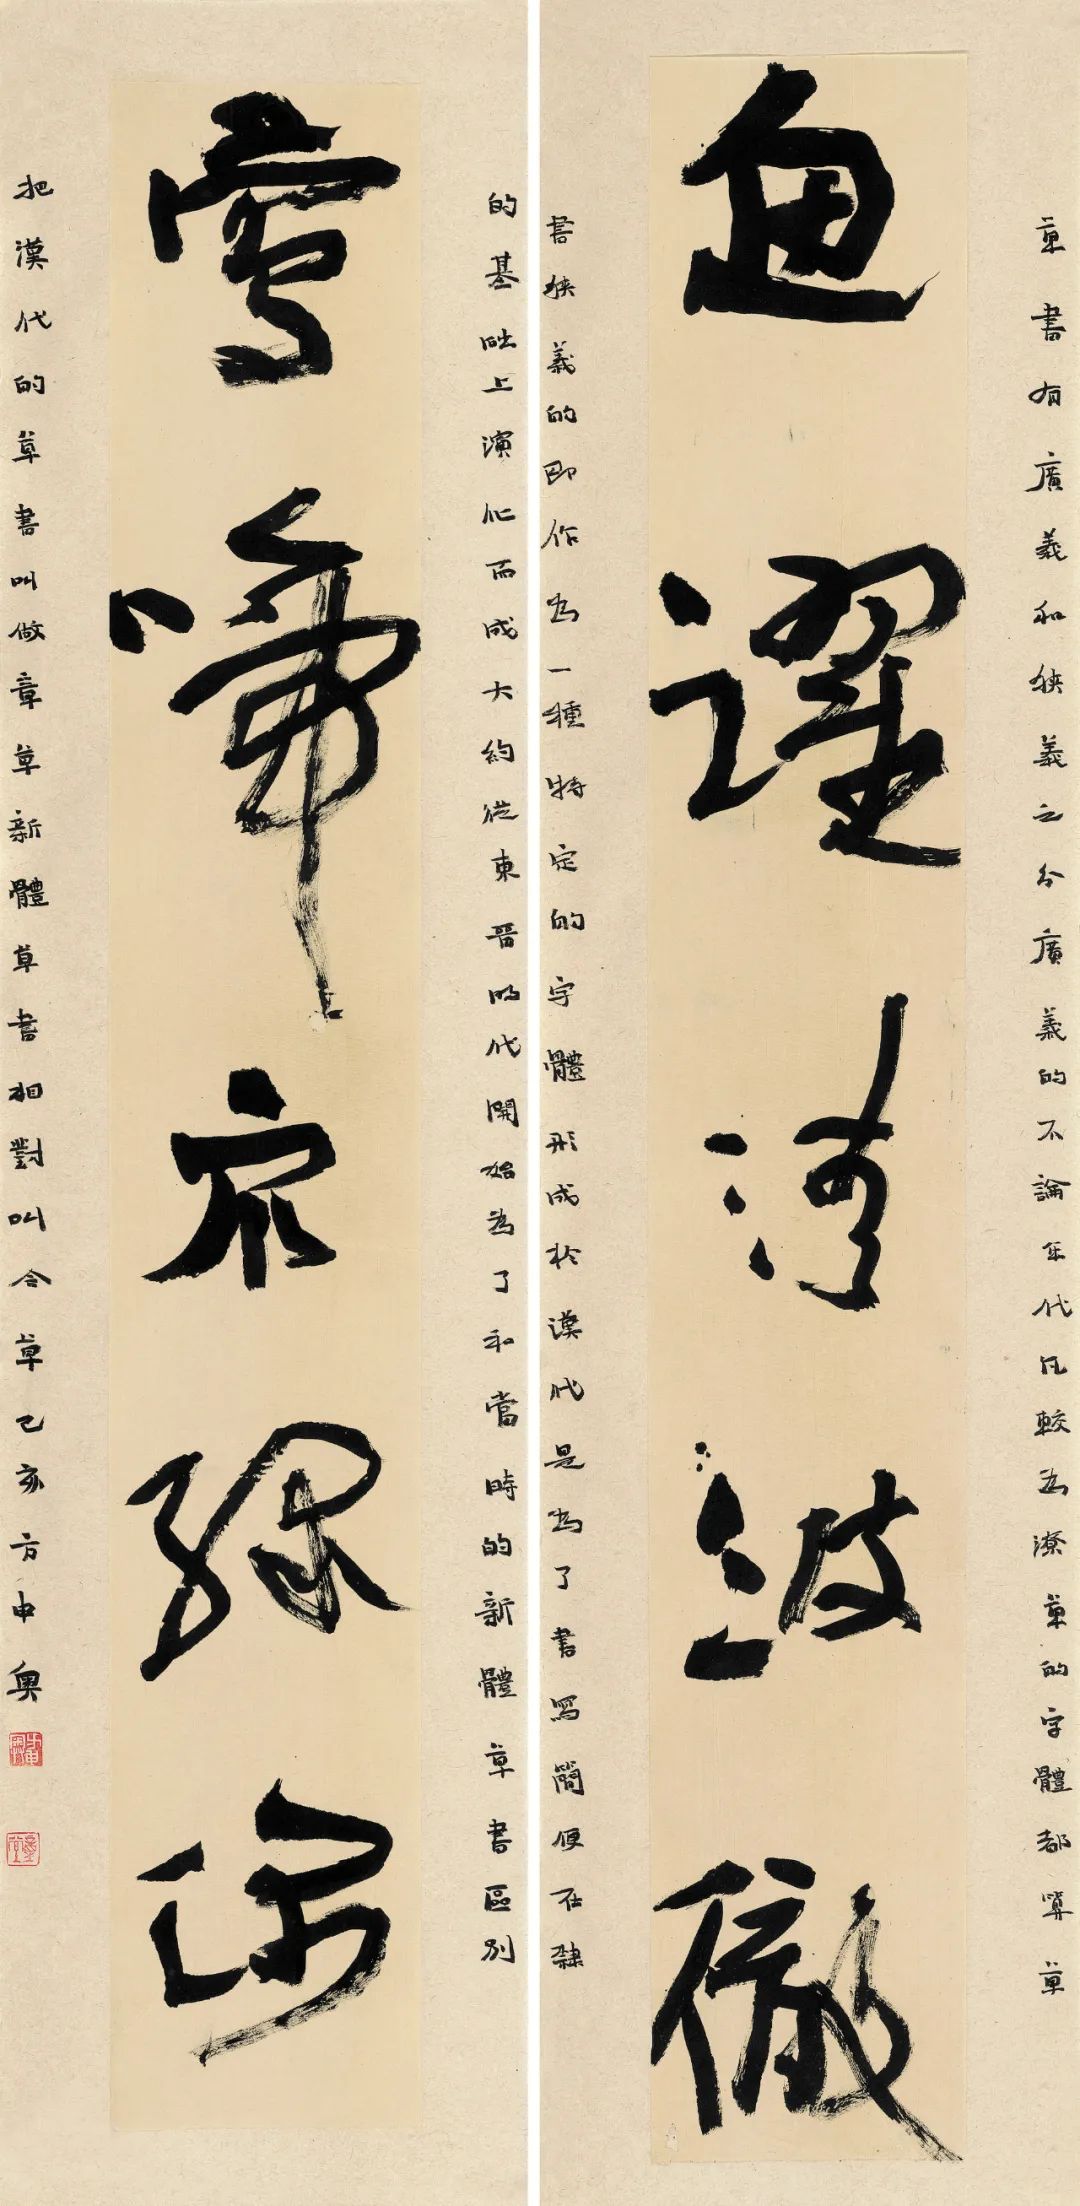 草書有廣義和狹義之分廣義的不論年代凡較為潦草的字體都算草
魚躍清波徹
書狹義的即作為一種特定的字體形成於漢代是為了書寫簡便在隸
的基礎上演化而成大約從東晉时代開始為了和當時的新體草書區別
鶯啼衆綠深
把漢代的草書叫做章草新體草書相對叫今草己亥方申奧